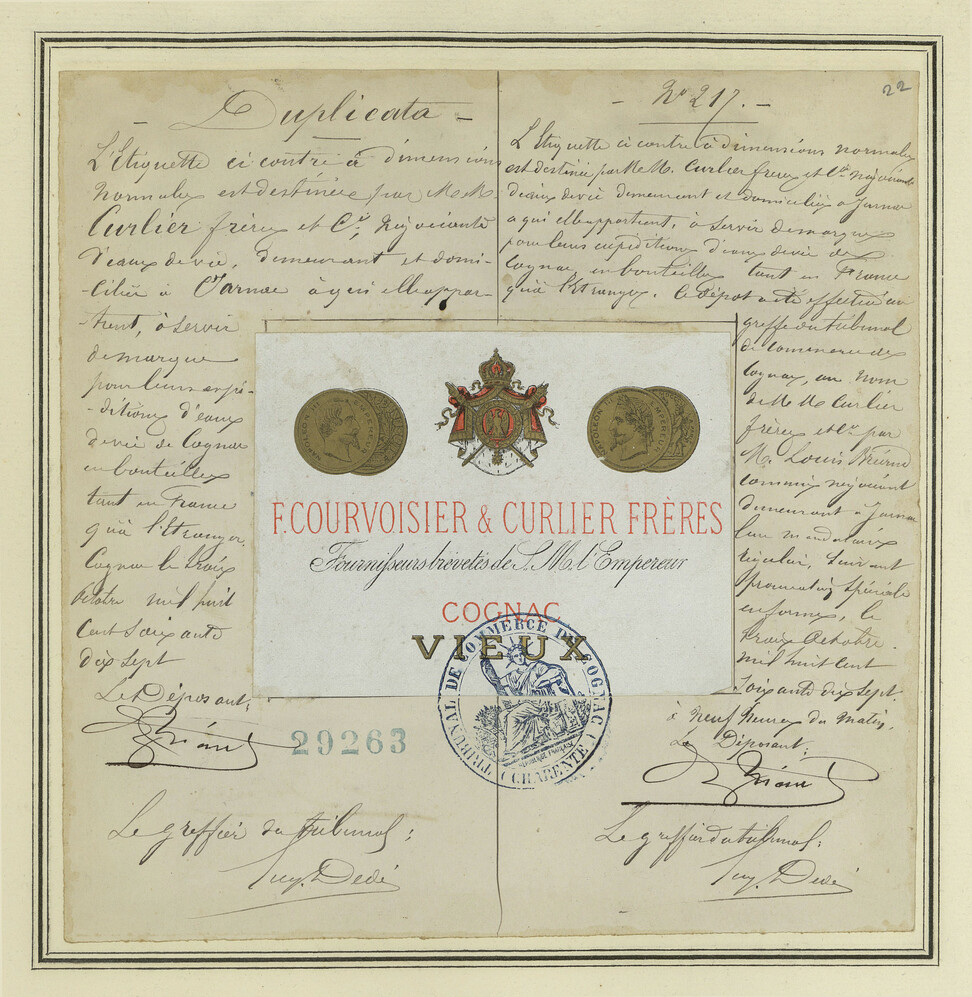 22
- Duplicata -
L'Etiquette ci contre à dimensions
normales est destinée par M.M.
Curlier frères et Cie, Négociants
d'eaux de vie, demeurant et domi-
-ciliés à Jarnac à qui elle appar-
-tient, à servir
de marque
pour leurs expé-
-ditions d'eaux
de vie de Cognac
en bouteilles
tant en France
qu'à l'étranger.
Cognac le trois
Octobre mil huit
cent soixante
dix sept
Le Déposant,
29263
Le greffier du tribunal:
- No 217. -
L'Etiquette ci contre à dimensions normales
est destinée par M.M. Curlier frères et Cie Négociants
d'eaux de vie demeurant et domiciliés à Jarnac
à qui elle appartient, à servir de marque
pour leurs expéditions d'eaux de vie de
Cognac, en bouteilles tant en France
qu'à l'étranger. Ce dépôt a été effectué au
greffe du tribunal
de Commerce de
Cognac, au nom
de M.M. Curlier
frères et Cie par
M. Louis
commis négociant
demeurant à Jarnac
leur mandataire
régulier, suivant
spéciale
en forme, le
trois Octobre
mil huit cent
soixante dix sept
à neuf heures du matin.
Le Déposant:
Le greffier du tribunal:
NAPOLEON III EMPEREUR
NAPOLEON EMPEREUR
F. COURVOISIER & CURLIER FRÈRES
Fournisseurs brévetés de S. M. l'Empereur
COGNAC
VIEUX
TRIBUNAL DE COMMERCE DE COGNAC
(CHARENTE)
RÉPUBLIQUE FRANÇAISE